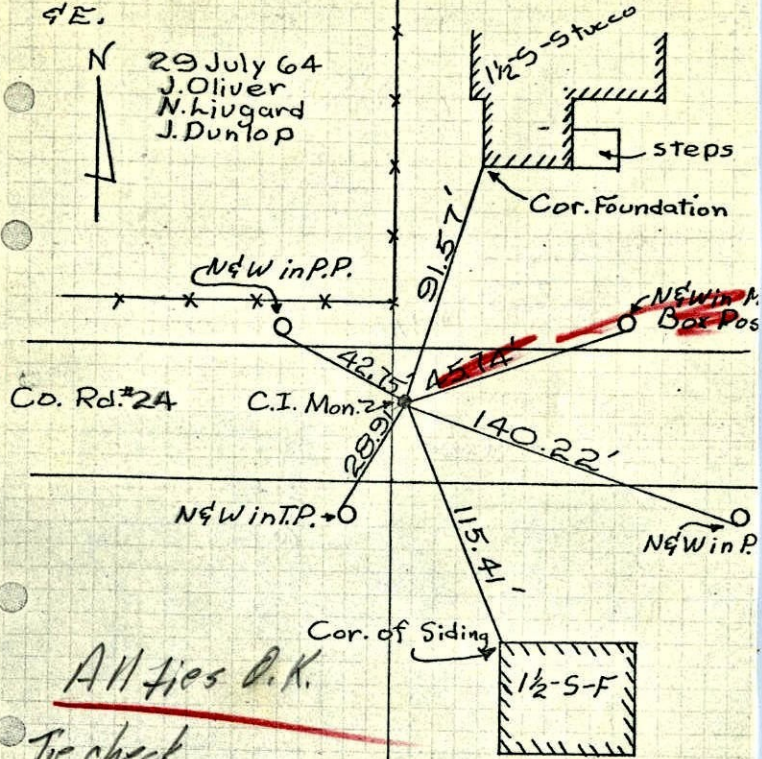 &E.
N
29 July 64
J. Oliver
N. Livgard
J. Dunlop
1½-S-Stucco
steps
Cor. Foundation
91.57'
N&W in P.P.
N&W in M.
Box Pos
42.75'
45.74'
Co. Rd. #24
C.I. Mon.
28.9'
140.22'
N&W in T.P.
115.41'
N&W in P.
Cor. of Siding
1½-S-F
All ties O.K.
Tie check